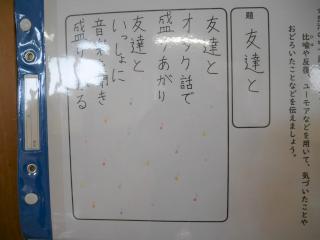 比喩や反復、ユーモアなどを用いて、気づいたことや
おどろいたことなどを伝えましょう。
題
友達と
友達と
オタク話で
盛りあがり
友達と
いっしょに
音楽聞き
盛り上がる